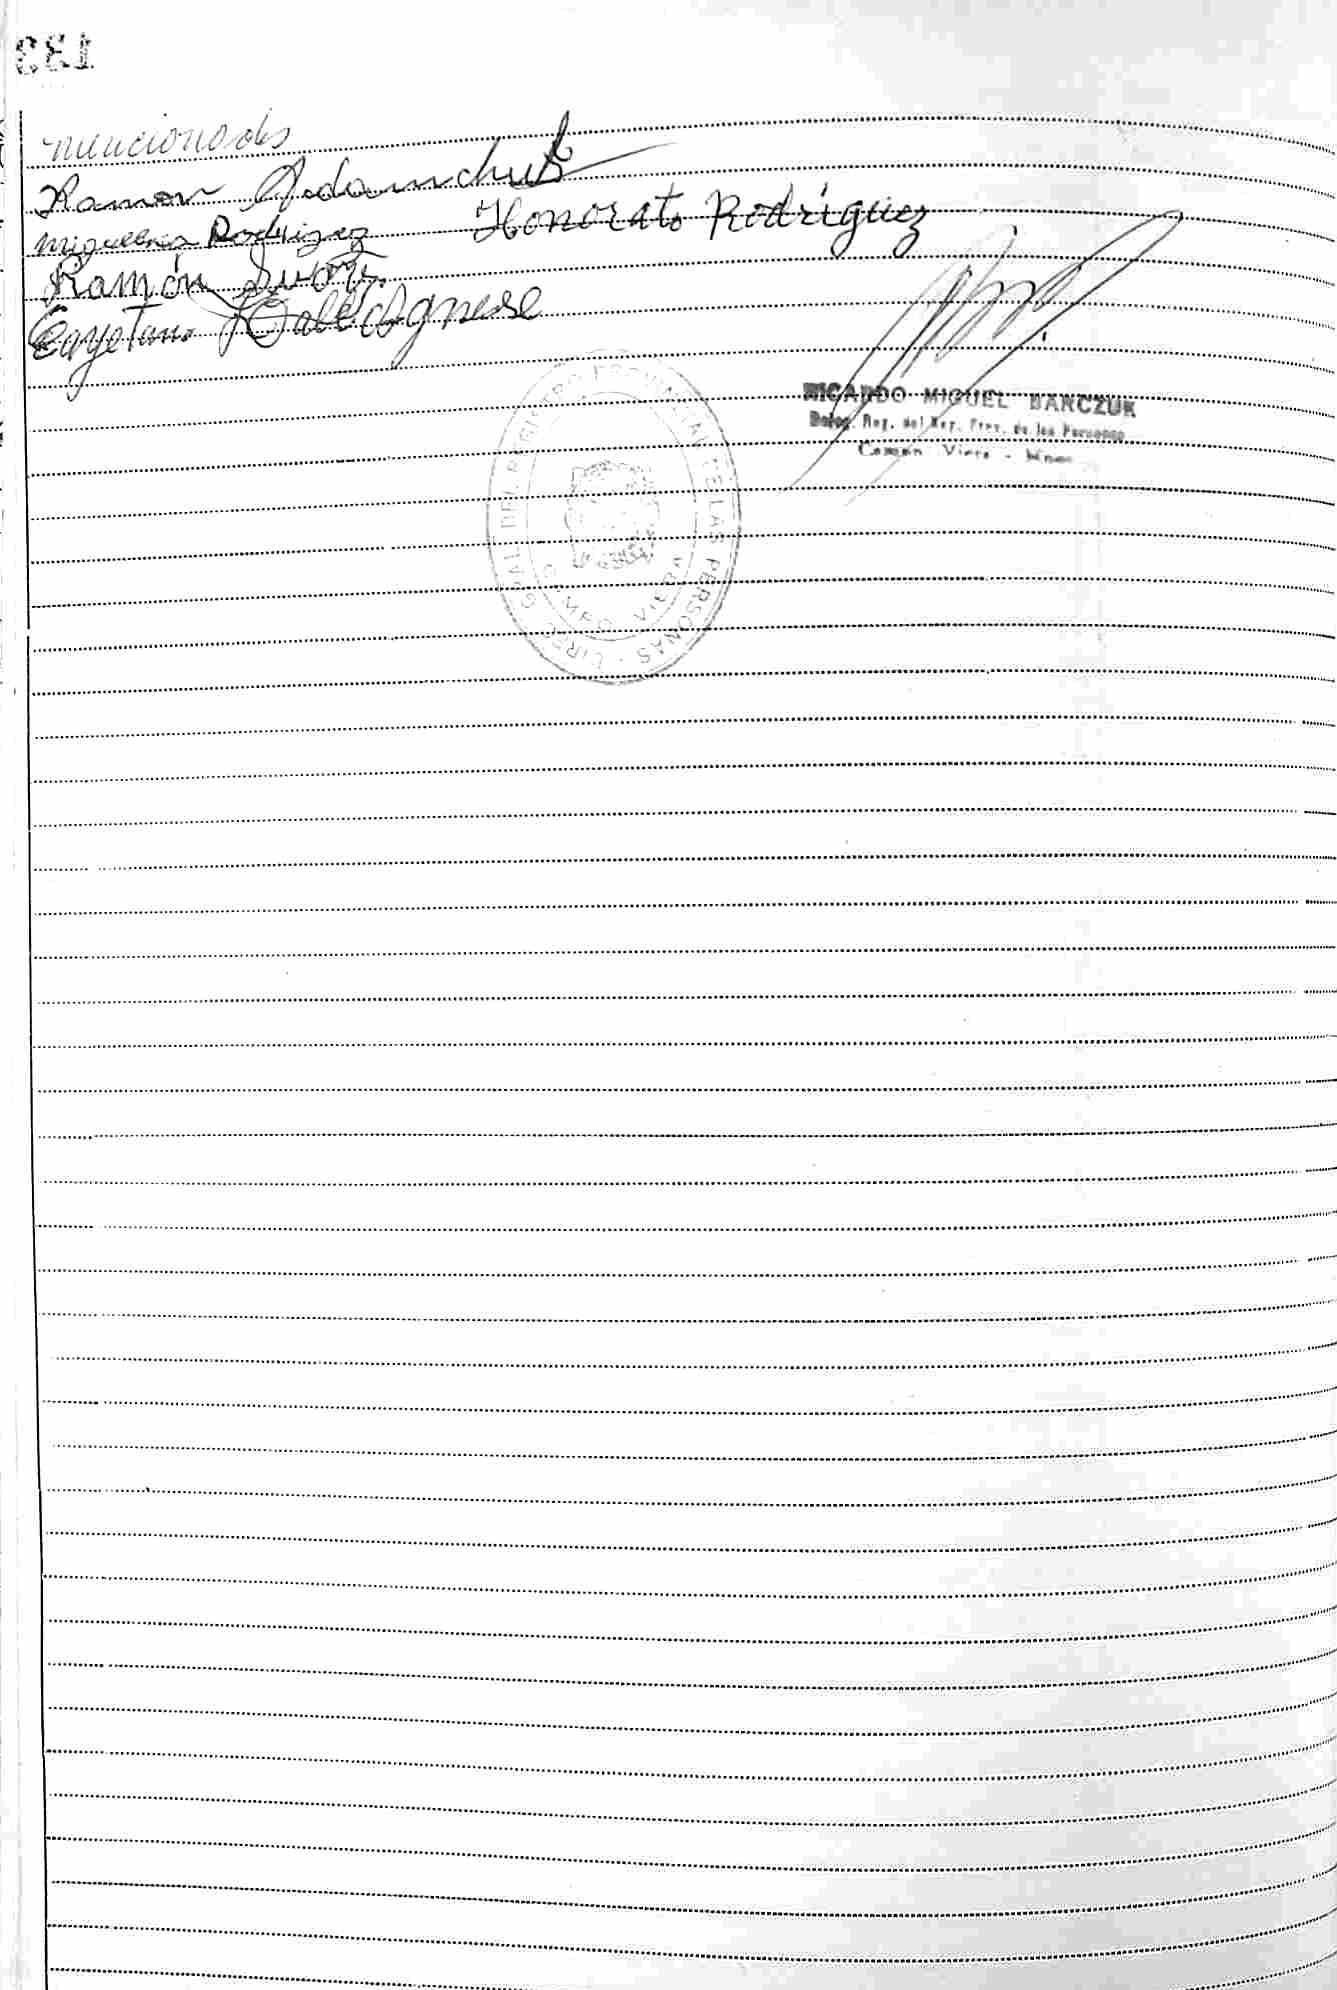 133
mencionados
Ramon Adamchuk
Miguelina Rodriguez Honorato Rodríguez
Ramón
Cayetano Dall'Agnese
RICARDO MIGUEL BARCZUK
Deleg. Reg. del Reg. Prov. de las Personas
Campo Viera - Mnes
REGISTRO PROVINCIAL DE LAS PERSONAS - DIREC. GRAL. DEL
CAMPO VIERA